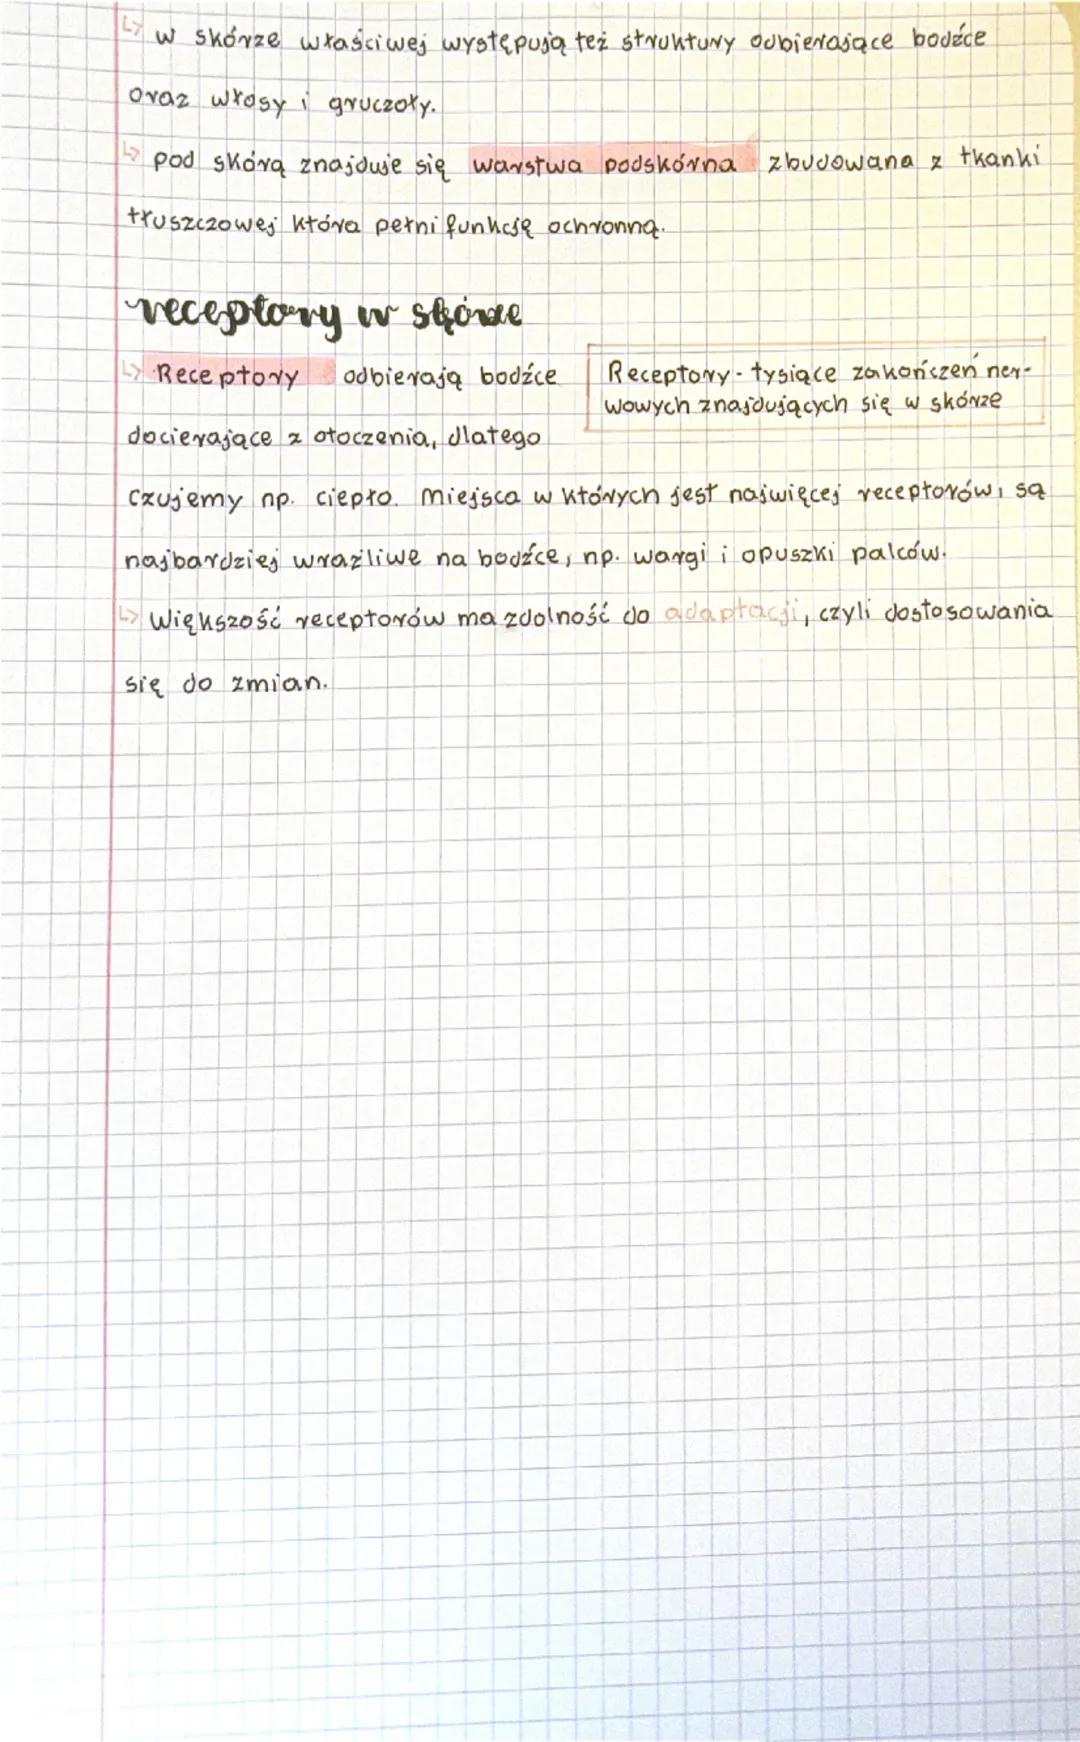 ↳ w skórze właściwej występują też struktury odbierające bodźce
oraz włosy i gruczoły.
↳ pod skórą znajduje się warstwa podskórna zbudowana z tkanki
tłuszczowej która pełni funkcję ochronną.
receptory w skórze
↳ Receptory odbierają bodźce
docierające z otoczenia, dlatego
Receptory - tysiące zakończeń ner-
wowych znajdujących się w skórze
czujemy np. ciepło. Miejsca w których jest najwięcej receptorów, są
najbardziej wrażliwe na bodźce, np. wargi i opuszki palców.
↳ Większość receptorów ma zdolność do adaptacji, czyli dostosowania
się do zmian.